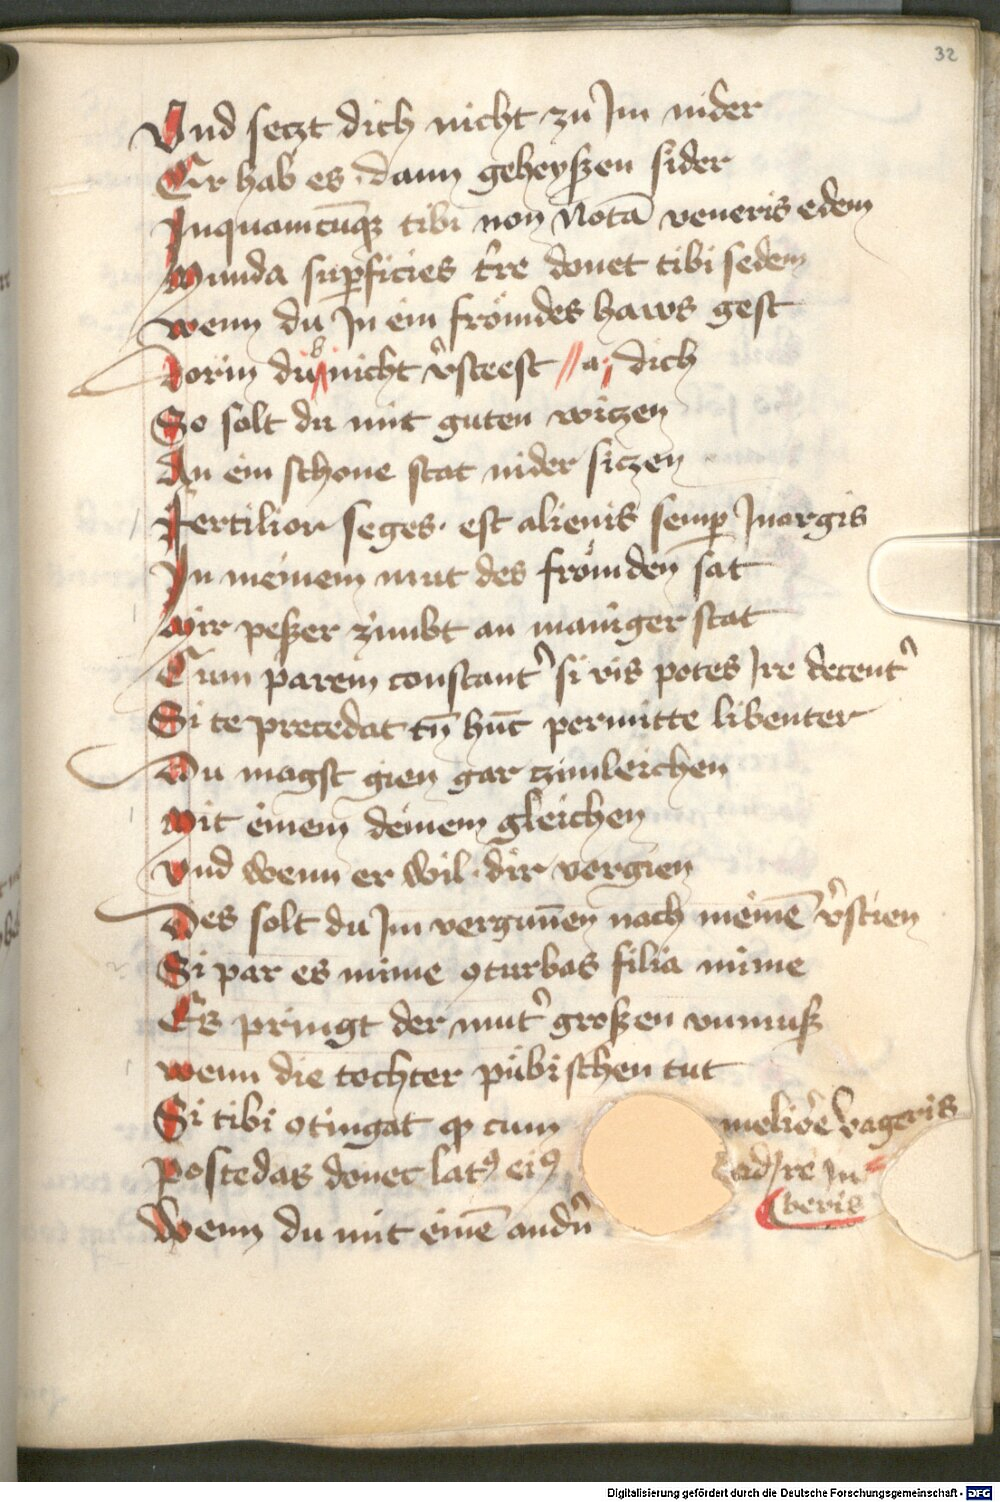 32
Vnd seczt dich nicht zu Im nider
Er hab es dann geheyßen sider
Inquamcūqꝫ tibi non Notā veneris edem
Munda suꝑficies tre donet tibi sedem
wenn du In ein frömdes haws gest
Dorin du nicht vsteest // a dich
b
So solt du mit guten wiczen
An ein schone stat nider siczen
Fertilior seges est alienis semꝑ In argis
In meinem mut des frömden sat
Mir peßer zimbt an maniger stat
Cum parem constant si vis potes Ire decent
Si te precedat tn̄ hūc permitte libenter
Du magst gien gar zimleichen
Mit einem deinem gleichen
vnd wenn er wil dir vorgien
Des solt du Im vergunnen nach meinē vstien
Si par es mime ꝯturbas filia mime
Es pringt der mut großen vnmuß
wenn die tochter pübischen tut
Si tibi ꝯtingat ꝙ cum meliore vageris
Postedas donec latꝰ eiꝰ ad Ire In
beris
Wenn du mit einē andn
Digitalisierung gefördert durch die Deutsche Forschungsgemeinschaft - DFG